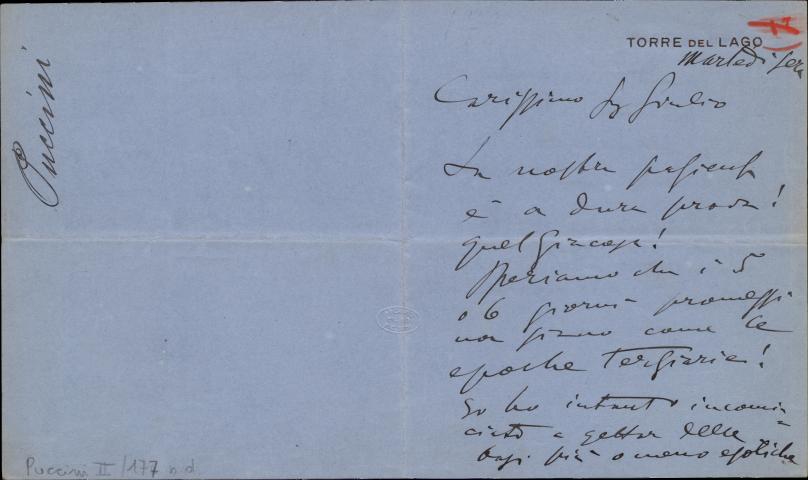 Puccini
17
TORRE DEL LAGO
Martedì sera
Carissimo Sg Giulio
La nostra pazienza
è a dura prova!
quel Giacosa!
Speriamo che i 5
o 6 giorni promessi
non siano come le
epoche terziarie!
Io ho intanto incomin=
ciato a gettar delle
basi più o meno esotiche
Puccini II/177 n.d.